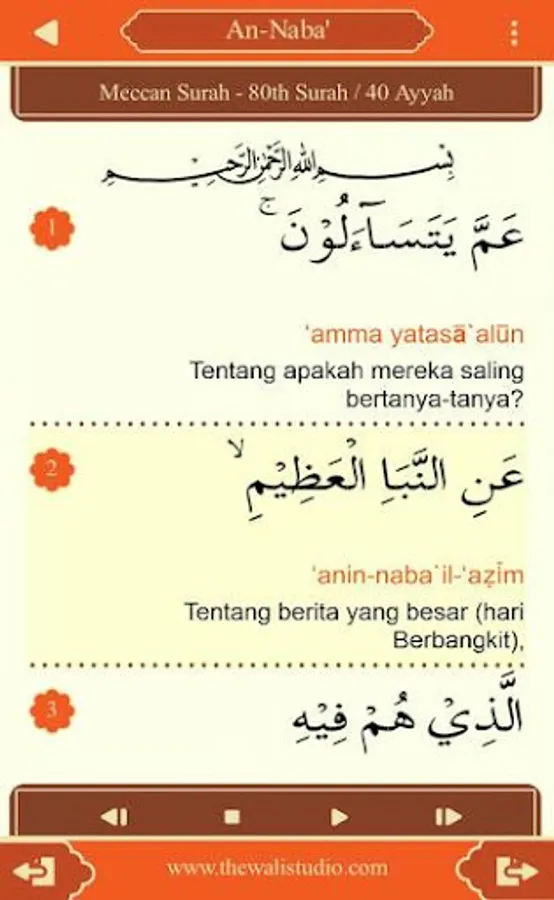 An-Naba'
Meccan Surah - 80th Surah / 40 Ayyah
بِسْمِ اللهِ الرَّحْمٰنِ الرَّحِيْمِ
1
عَمَّ يَتَسَاۤءَلُوْنَۚ
'amma yatasā`alūn
Tentang apakah mereka saling
bertanya-tanya?
2
عَنِ النَّبَاِ الْعَظِيْمِۙ
'anin-naba`il-'aẓīm
Tentang berita yang besar (hari
Berbangkit),
3
الَّذِيْ هُمْ فِيْهِ
www.thewalistudio.com